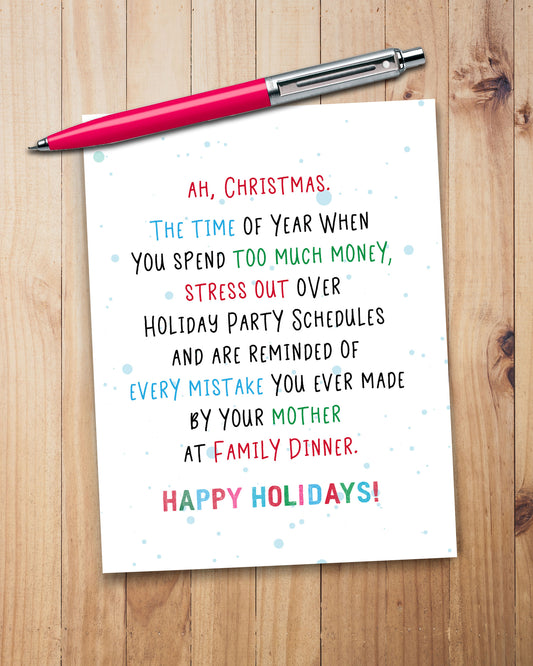 AH, CHRISTMAS.
THE TIME OF YEAR WHEN
YOU SPEND TOO MUCH MONEY,
STRESS OUT OVER
HOLIDAY PARTY SCHEDULES
AND ARE REMINDED OF
EVERY MISTAKE YOU EVER MADE
BY YOUR MOTHER
AT FAMILY DINNER.
HAPPY HOLIDAYS!